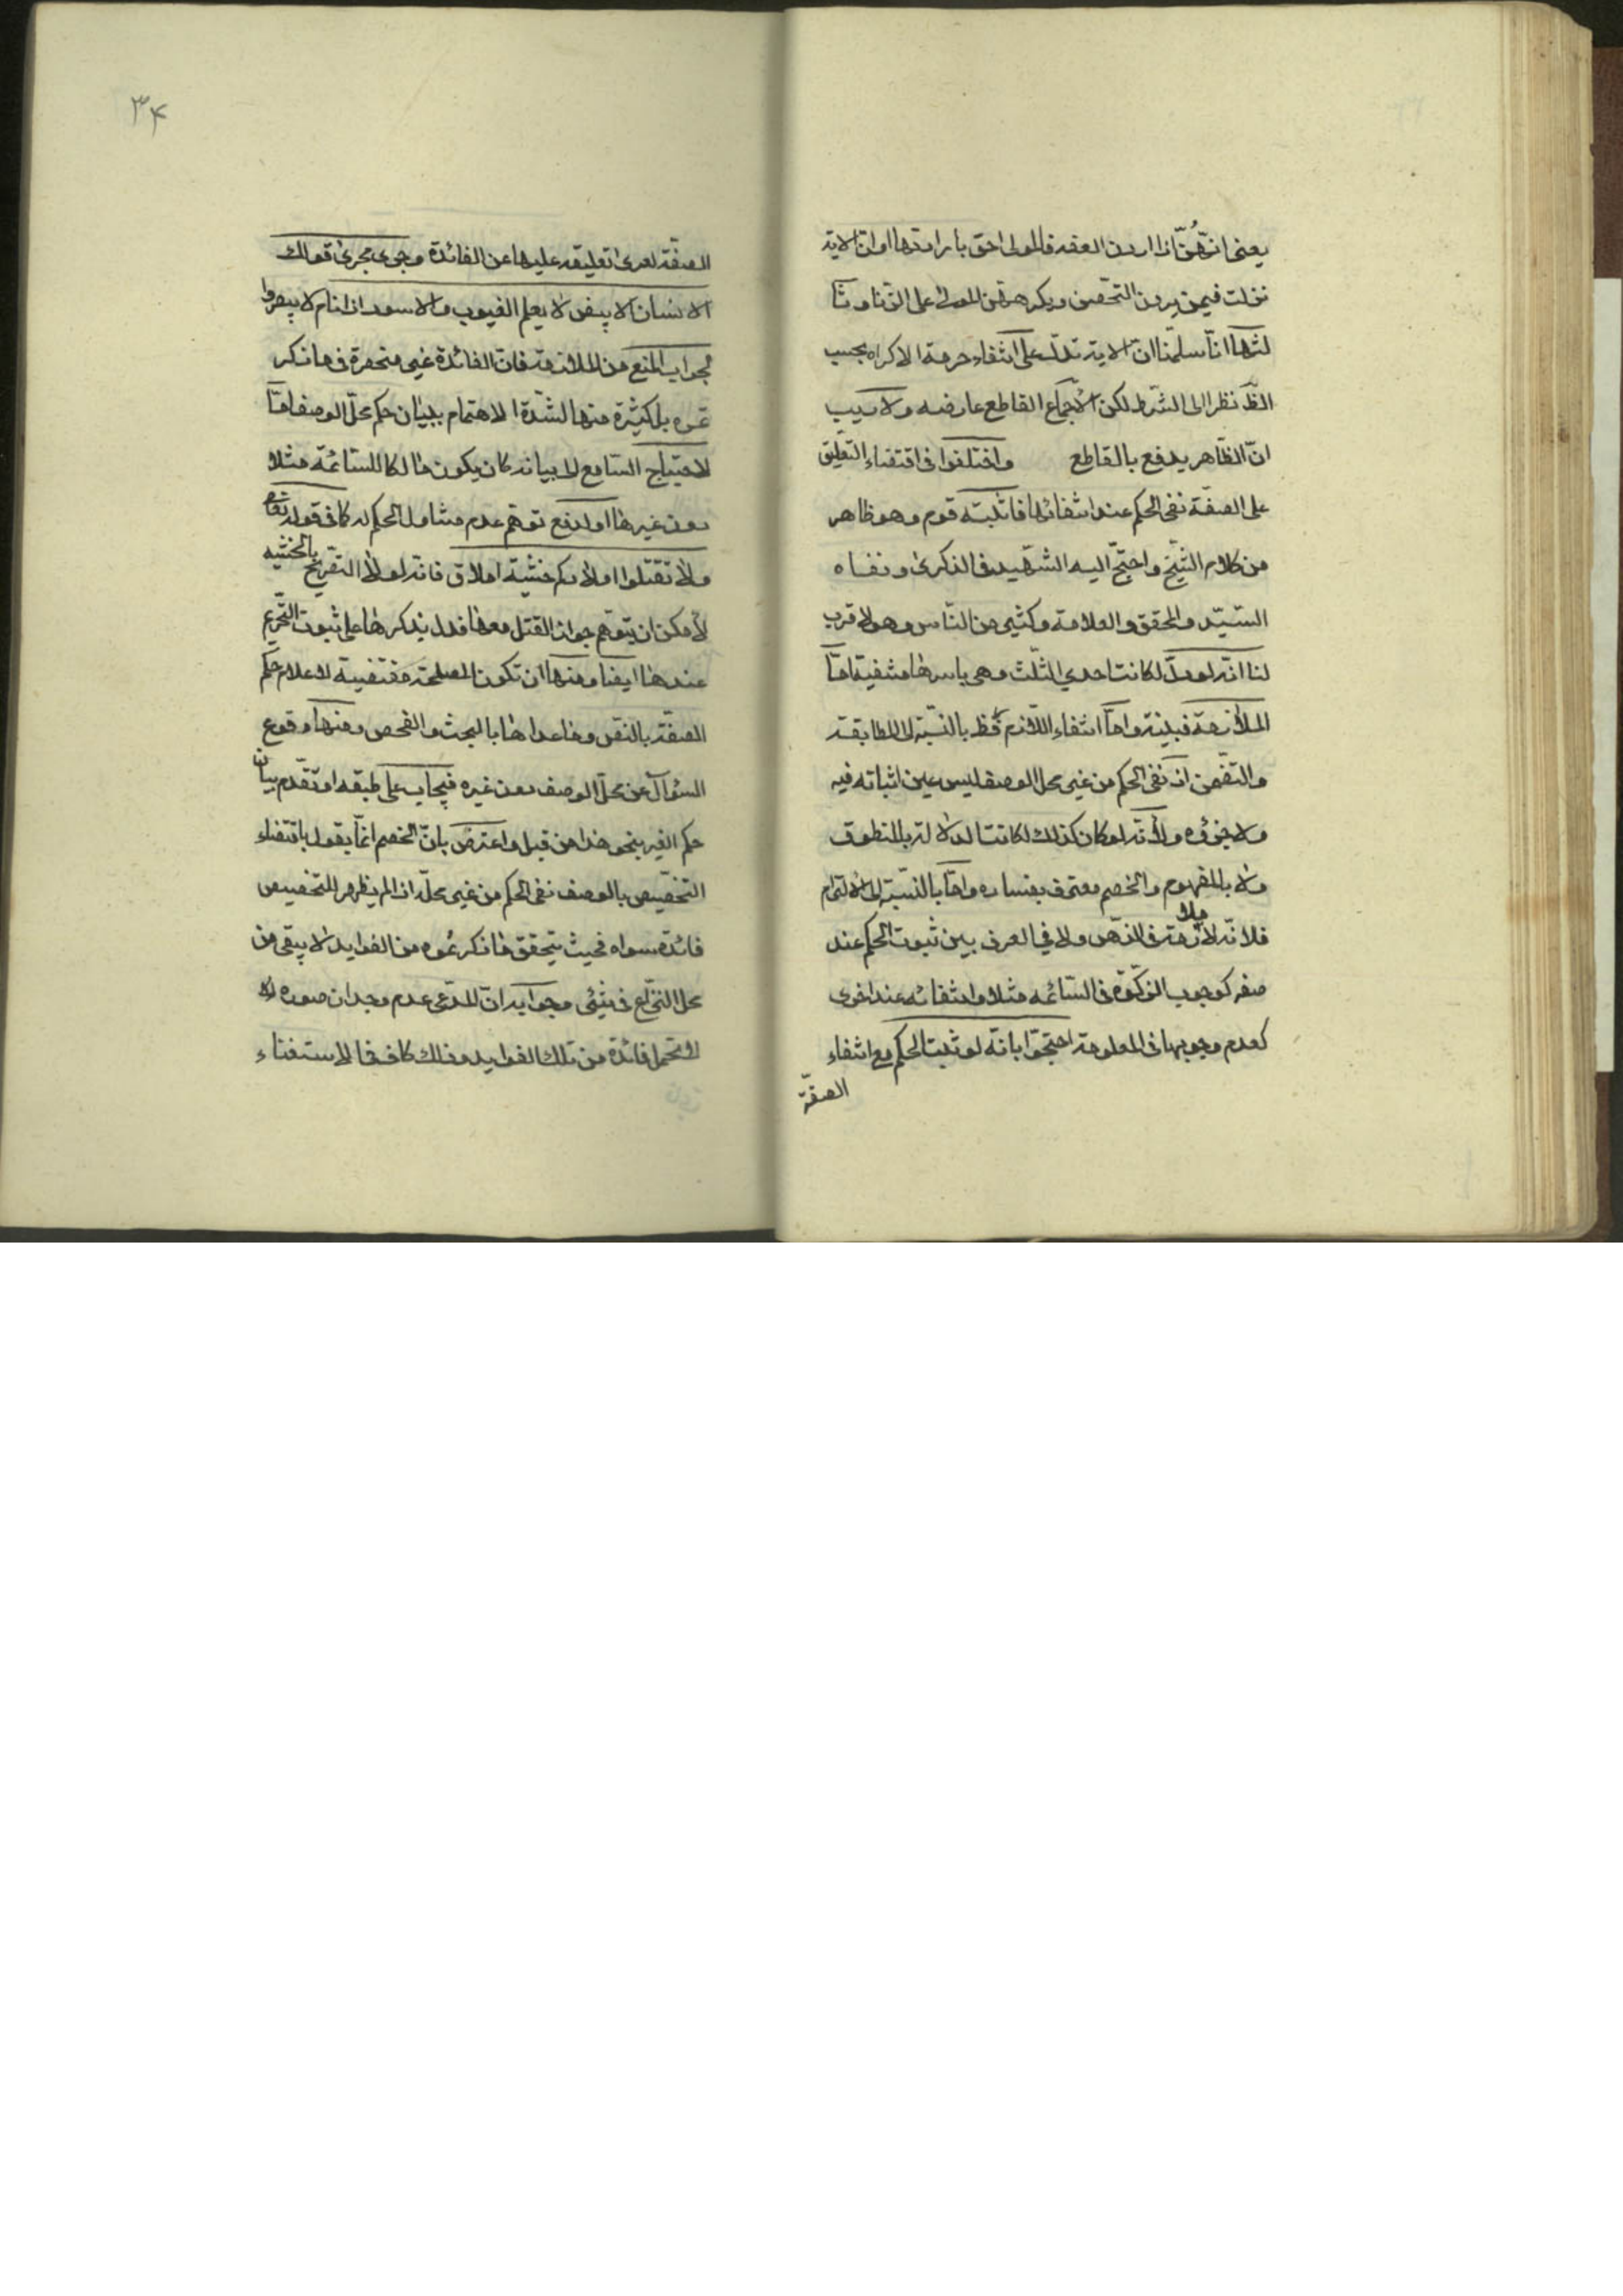 يعنى انهنّ اذا اردن العفه فالمولى احق بارادتها او انّ الاية
نزلت فيمن يردن التحصن ويكرههنّ المولى على الزنا وثا
لثها انّا سلمنا ان الاية تدلّ على انتفاء حرمة الاكراه بحسب
الظّ نظرا الى الشرط لكن الاجماع القاطع عارضه ولا ريب
انّ الظاهر يدفع بالقاطع واختلفوا فى اقتضاء التعليق
على الصفة نفى الحكم عند انتفائها فاثبته قوم وهو ظاهر
من كلام الشيخ واحتجّ اليه الشهيد فى الذكرى ونفاه
السيّد والمحقق والعلامة وكثير من الناس وهو الاقرب
لنا انّه لو دلّ لكانت احدي الثلث وهى باسرها منتفية امّا
الملازمة فبيّنة وامّا انتفاء اللازم فظ بالنسبة الى المطابقة
والتضمن اذ نفى الحكم من غير محل الوصف ليس عين اثباته فيه
ولا جزؤه ولانّه لو كان كذلك لكانت الدلالة بالمنطوق
ولا بالمفهوم والخصم معترف بفساده وامّا بالنسبة الى الالتزام
فلانّه لا ملازمة فى الذهن ولا في العرف بين ثبوت الحكم عند
صفه كوجوب الزكوة فى السائمه مثلا وانتفائه عند اخرى
كعدم وجوبها فى المعلوفة احتجّوا بانّه لو ثبت الحكم مع انتفاء
الصفة
۳۴
الصفة لعرى تعليقه عليها عن الفائدة وجرى مجرى قولك
الانسان الابيض لا يعلم الغيوب والاسود اذا نام لا يبصر وا
لجواب المنع من الملازمة فانّ الفائدة غير منحصرة فى ما ذكر
تموه بل كثيرة منها لشدة الاهتمام ببيان حكم محلّ الوصف امّا
لاحتياج السامع الى بيانه كان يكون مالكا للسائمة مثلا
دون غيرها او لدفع توهّم عدم تناول الحكم له كما فى قوله تعالى
ولا تقتلوا اولادكم خشية املاق فانّه لولا التصريح بالخشيه
لامكن ان يتوهّم جواز القتل معها فدل بذكرها على ثبوت التحريم
عندها ايضا ومنها ان تكون المصلحة مقتضية لاعلام حكم
الصفة بالنص وما عداها بالبحث والفحص ومنها وقوع
السؤال عن محلّ الوصف دون غيره فيجاب على طبقه او تقدم بيان
حكم الغير بنحو هذا من قبل واعترض بانّ الخصم انّما يقول باقتضاء
التخصيص بالوصف نفى الحكم من غير محلّه اذا لم يظهر للتخصيص
فائدة سواه فحيث يتحقق ما ذكرتموه من الفوايد لا يبقى من
محل النزاع فى شئى وجوابه انّ المدّعى عدم وجدان صوره لا
تحتمل فائدة من تلك الفوايد وذلك كاف فى الاستغناء